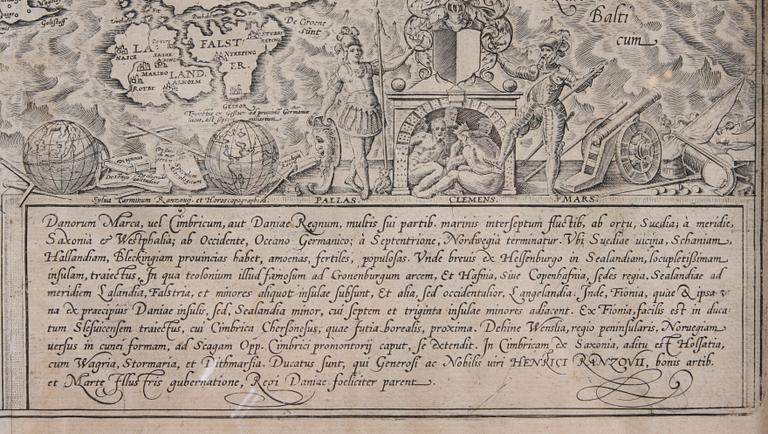 Balti
cum
De Groene
sunt
LA
LAND.
FALST
ER.
NASCE
MARIBO
ROTBY
NYKEPING
GEDOR
Sylva Carminum Ranzouij. et Horoscopographica.
PALLAS.
CLEMENS.
MARS.
Danorum Marca, vel Cimbricum, aut Daniae Regnum, multis sui partib. marinis interseptum fluctib, ab ortu, Suedia; à meridie,
Saxonia & Westphalia; ab Occidente, Oceano Germanico; à Septentrione, Nordwegia terminatur. Vbi Suediae vicina, Schaniam,
Hallandiam, Bleckingiam provincias habet, amoenas, fertiles, populosas. Vnde brevis de Helsenburgo in Sealandiam, locupletissimam
insulam, traiectus. In qua teolonium illud famosum ad Cronenburgum arcem, Et Hafnia, Siue Copenhafnia, sedes regia. Sealandiae ad
meridiem Lalandia, Falstria, et minores aliquot insulae subsunt, Et alia, sed occidentalior, Langelandia. Inde, Fionia, quae & ipsa v-
na de praecipuis Daniae insulis, sed, Sealandia minor, cui septem et triginta insulae minores adiacent. Ex Fionia, facilis est in duca
tum Slesuicensem traiectus, cui Cimbrica Chersonesus, quae Iutia borealis, proxima. Dehinc Wenslia, regio peninsularis, Noruegiam
versus in cunei formam, ad Scagam Opp. Cimbrici promontorij caput, se extendit. In Cimbricam de Saxonia, aditu est Holsatia,
cum Wagria, Stormaria, et Dithmarsia. Ducatus sunt, qui Generosi ac Nobilis viri HENRICI RANZOVII, bonis artib.
et Marte Illustris gubernatione, Regi Daniae foeliciter parent.